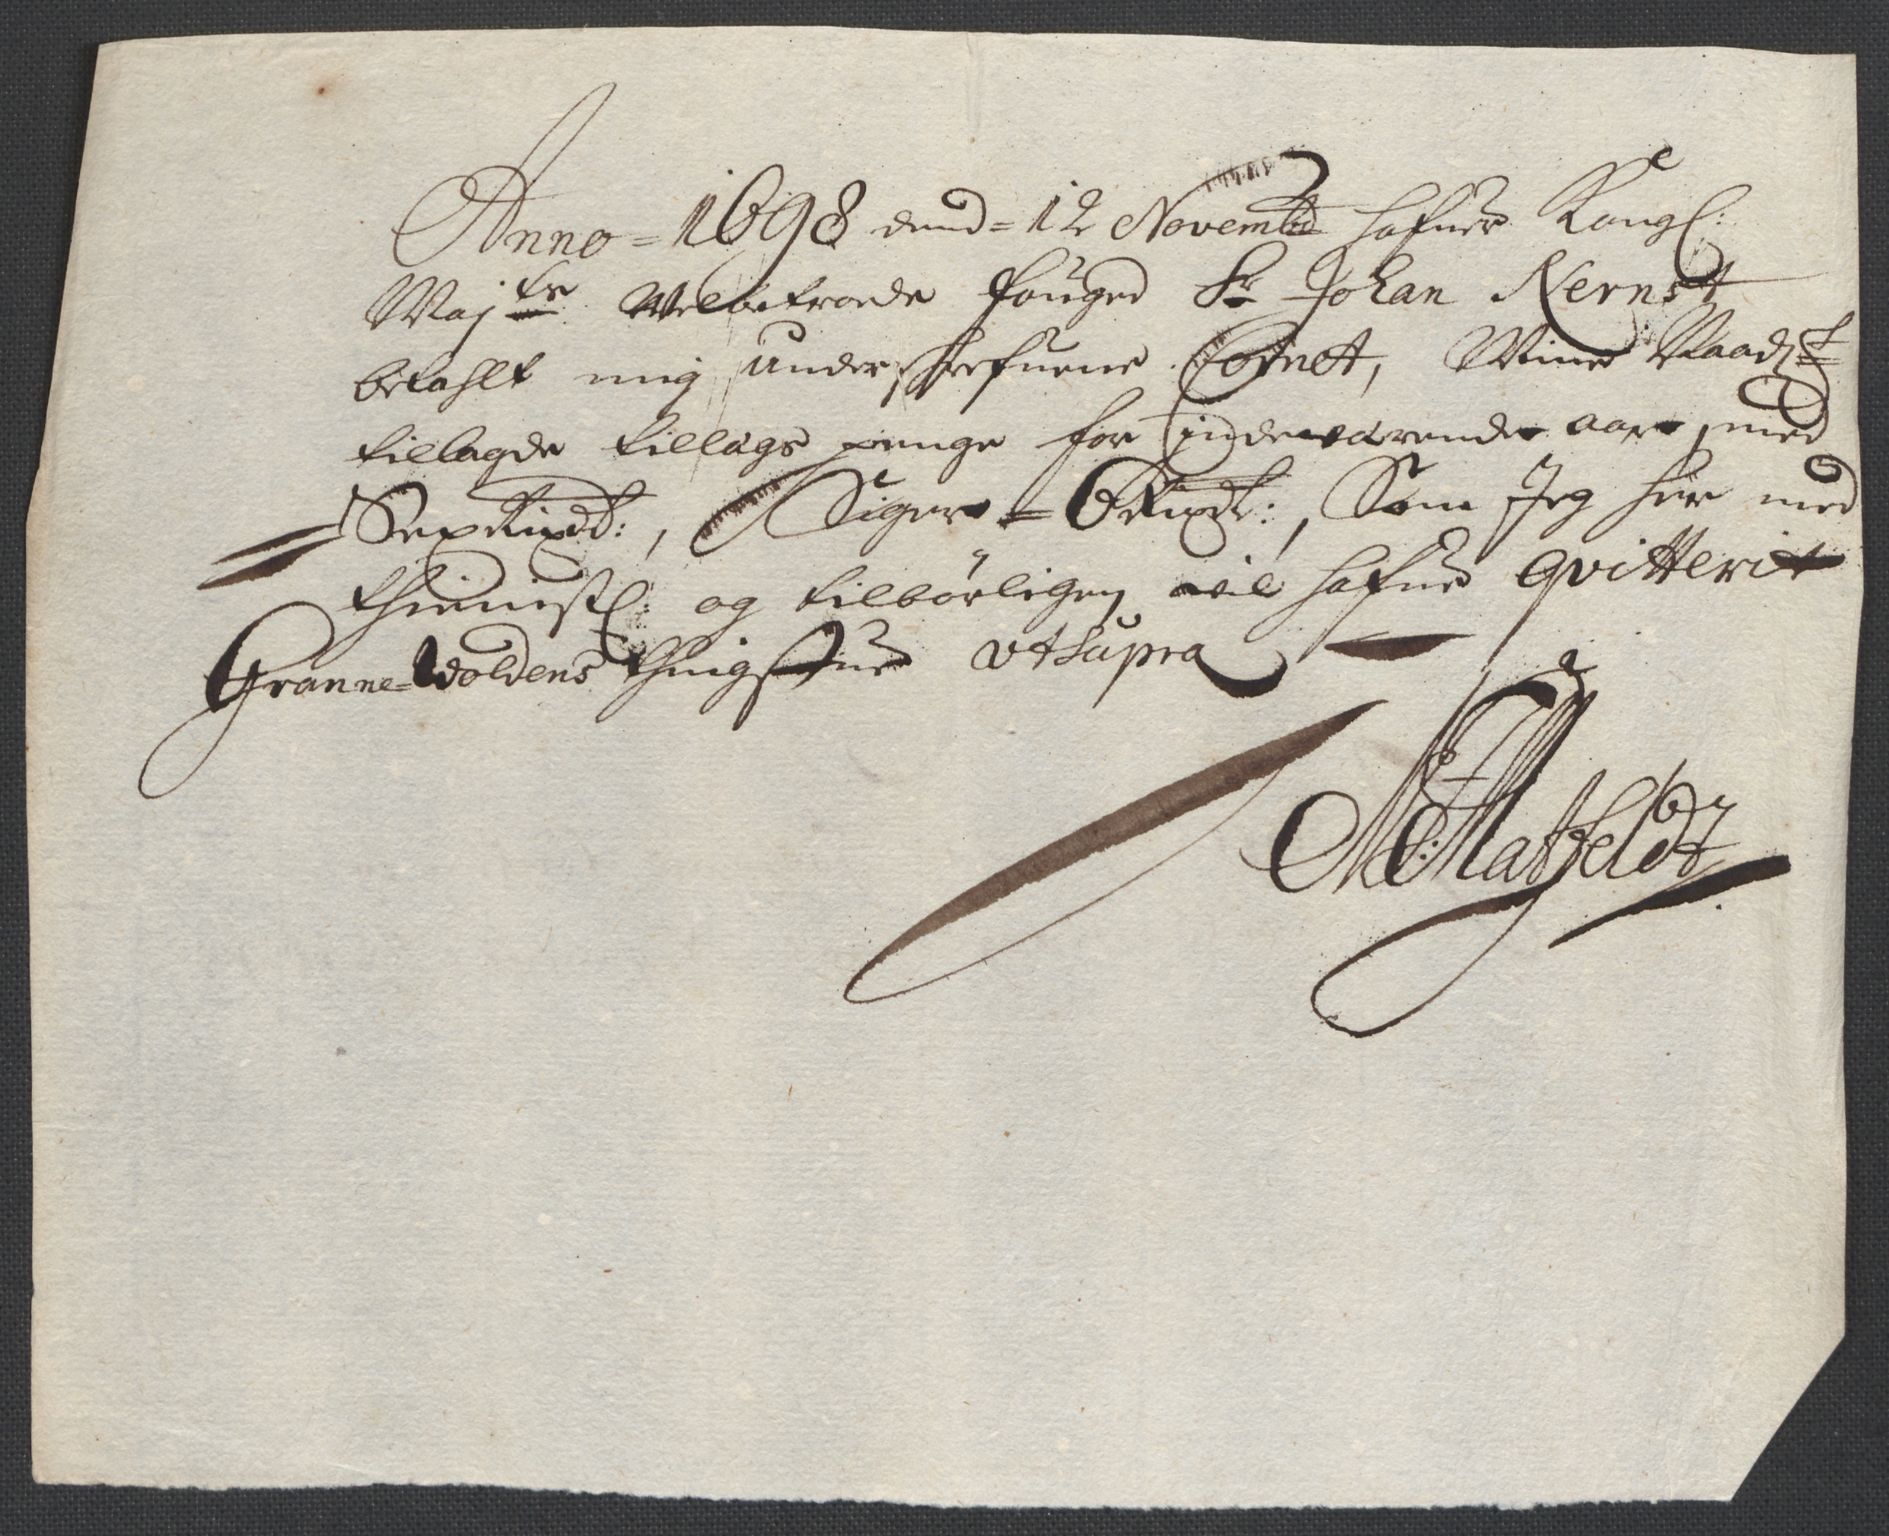 Anno = 1698 dend = 12 Novembr hafuer Kongl:
Maj:ts Welbetroede fouged Sr Johan Nernst
betahlt mig underschrefuene Cornet, Mine
tillagde tillægs penge for indeværende aar, med
Sex Rixdl:, Siger = 6 Rixdl:, Som Jeg her med
thienistl: og tilbörligen vil hafue qvitterit
Granne-Woldens thingstue vt supra
Matfeldt